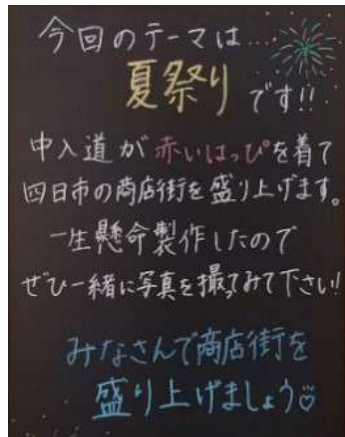 今回のテーマは…
夏祭りです!!
中入道が赤いはっぴを着て
四日市の商店街を盛り上げます。
一生懸命製作したので
ぜひ一緒に写真を撮ってみて下さい!
みなさんで商店街を
盛り上げましょう♡